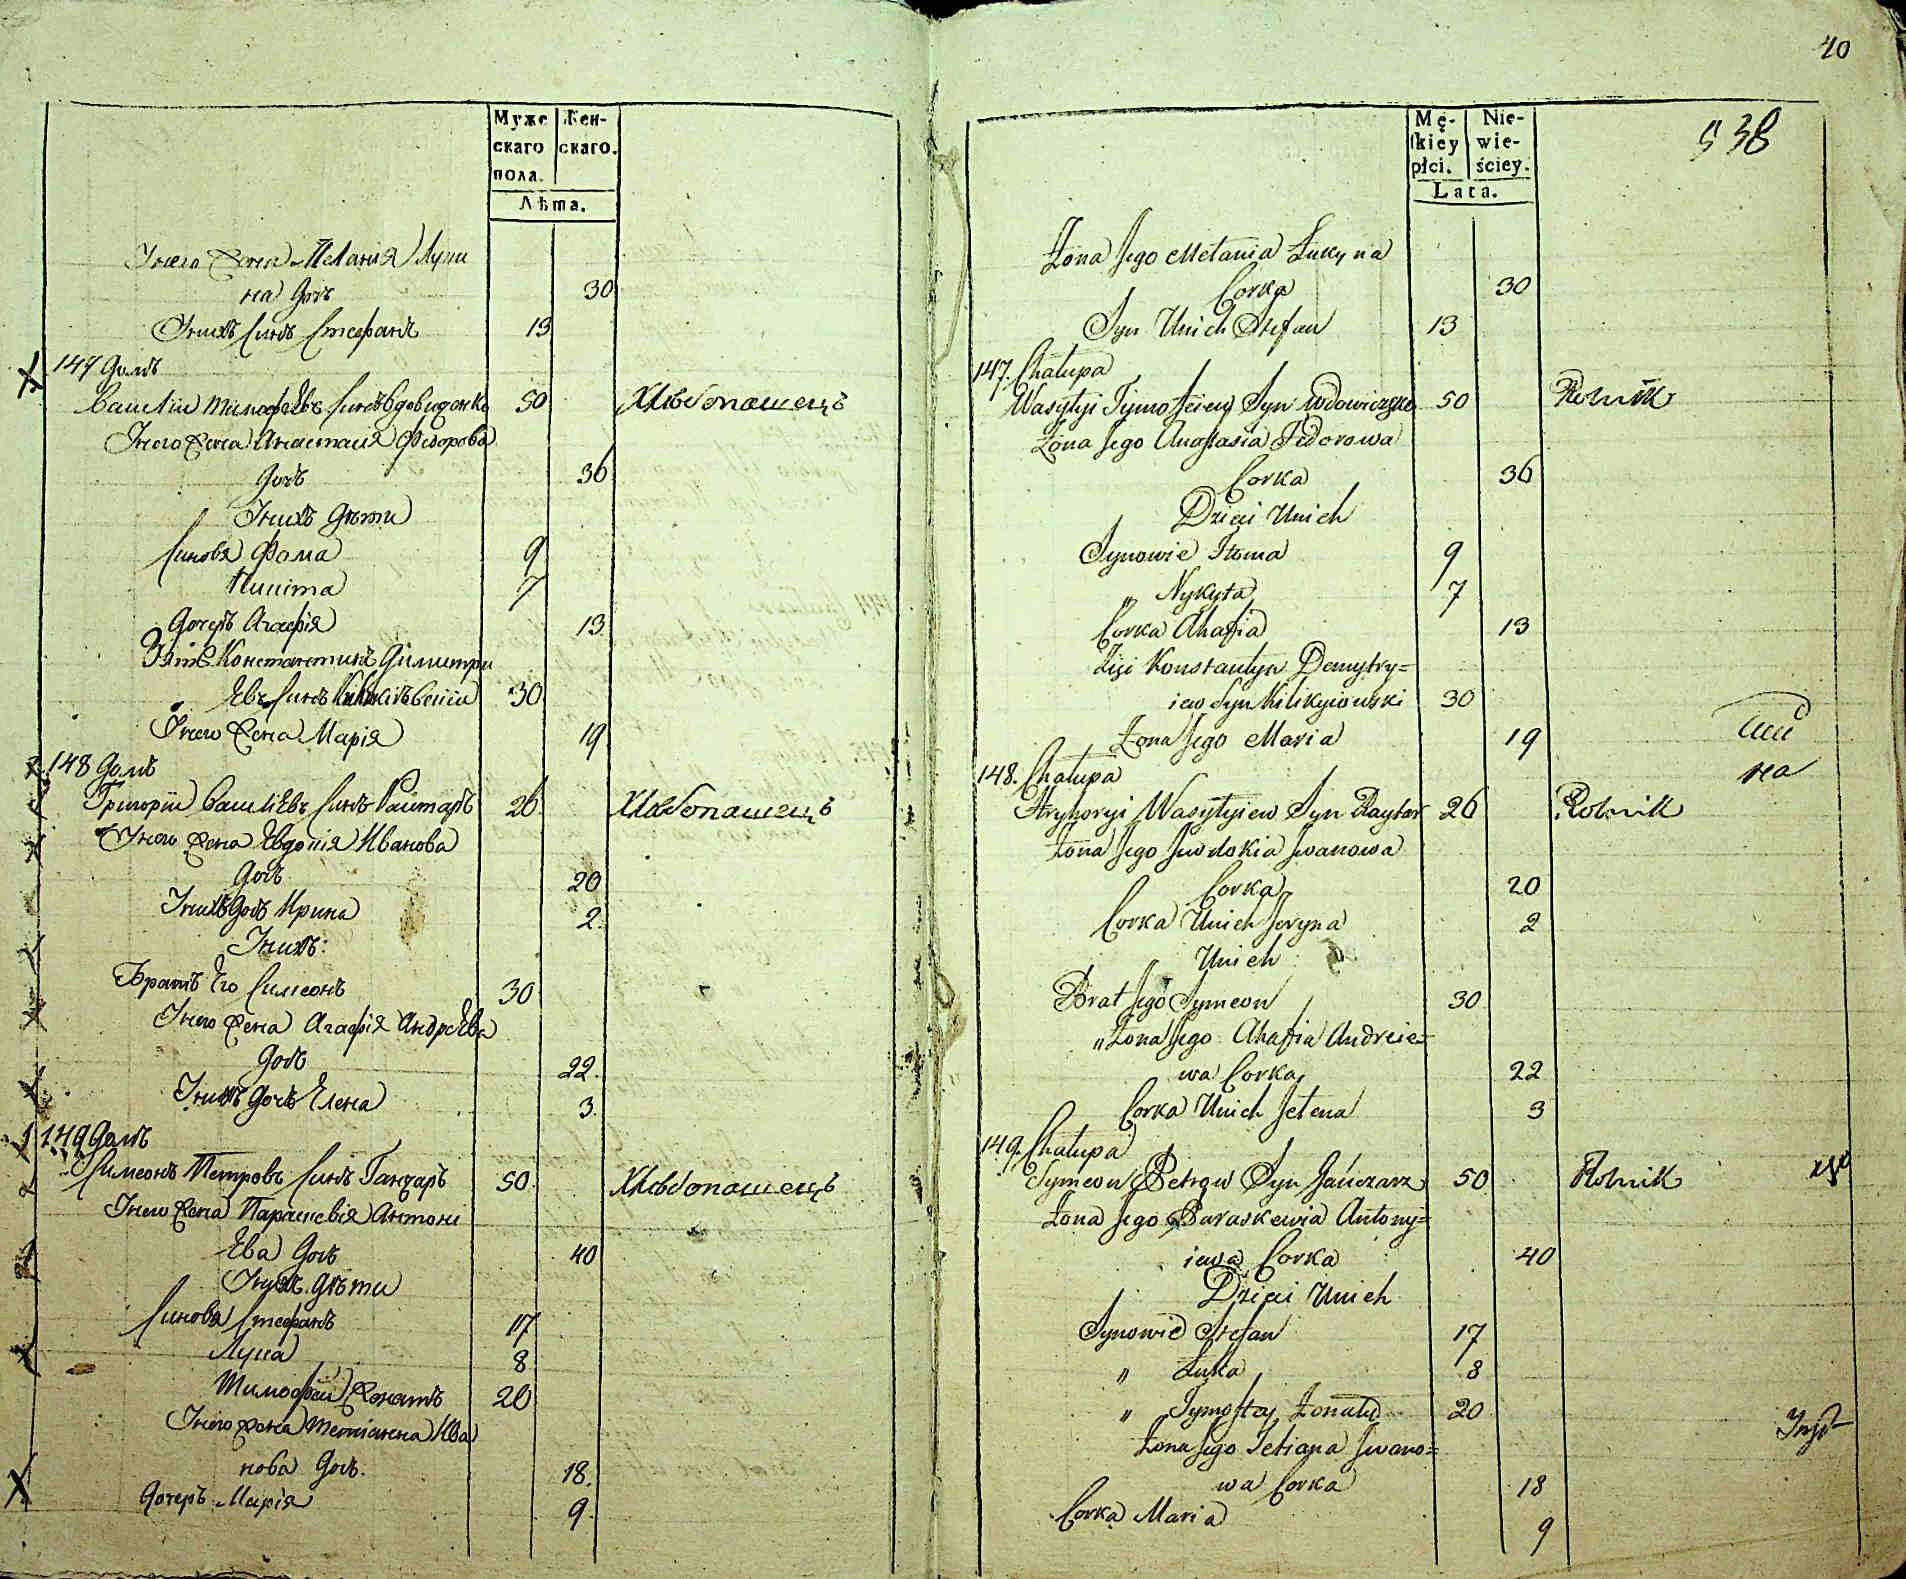 Муже
скаго
пола.
Жен-
скаго.
Лѣта.
У него Жена Мелания Луки
на Дочь 30
У них Синъ Стефанъ 13
147 Домъ
Василїи Тимофѣевъ Синъ Вдовиченко 50 Хлѣбопашецъ
У него Жена Анастасия Федорова
Дочь 36
У нихъ Дѣти
Синовя Фома 9
Никита 7
Дочеръ Агафїя 13
Зять Константинъ Димитри
Евъ Синъ 30
У него Жена Марїя 19
148 Домъ
Григорїи Василїевъ Синъ Раитаръ 26 Хлѣбопашецъ
У него Жена Евдокїя Иванова
Дочь 20
У нихъ Дочь Ирина 2
У нихъ:
Братъ Его Симеонъ 30
У него Жена Агафїя Андреева
Дочь 22
У нихъ Дочь Елена 3
149 Домъ
Симеонъ Петровъ Синъ Ганчаръ 50 Хлѣбопашецъ
У него Жена Параскевїя Антонї
Ева Дочь 40
У нихъ Дѣти
Синовя Стефанъ 17
Лука 8
Тимофеи Жонатъ 20
У него Жена Тетїанна Ива
нова Дочь. 18.
Дочеръ Марїя 9.
40
538
Mę-
skiey
płci.
Nie-
wie-
ściey.
Lata.
Żona Jego Melania Łukyna
Corka 30
Syn Unich Stefan 13
147. Chałupa
Wasylyi Tymofeiew Syn Wdowiczenko 50 Rolnik
Żona Jego Anastasia Fedorowa
Corka 36
Dzieci Unich
Synowie Foma 9
" Nykyta 7
Corka Ahafia 13
Zięć Konstantyn Demytry=
iew Syn 30
Żona Jego Maria 19
148. Chałupa
Hryhoryi Wasylyiew Syn Raytar 26 Rolnik
Żona Jego Jewdokia Iwanowa
Corka 20
Corka Unich Iryna 2
Unich
Brat Jego Symeon 30
" Żona Jego Ahafia Andreie=
wa Corka 22
Corka Unich Jelena 3
149. Chałupa
Symeon Petrow Syn Hańczarz 50 Rolnik
Żona Jego Paraskewia Antony=
iewa Corka 40
Dzieci Unich
Synowie Stefan 17
" Łuka 8
" Tymofey Żonaty 20
Żona Jego Tetiana Iwano=
wa Corka 18
Corka Maria 9